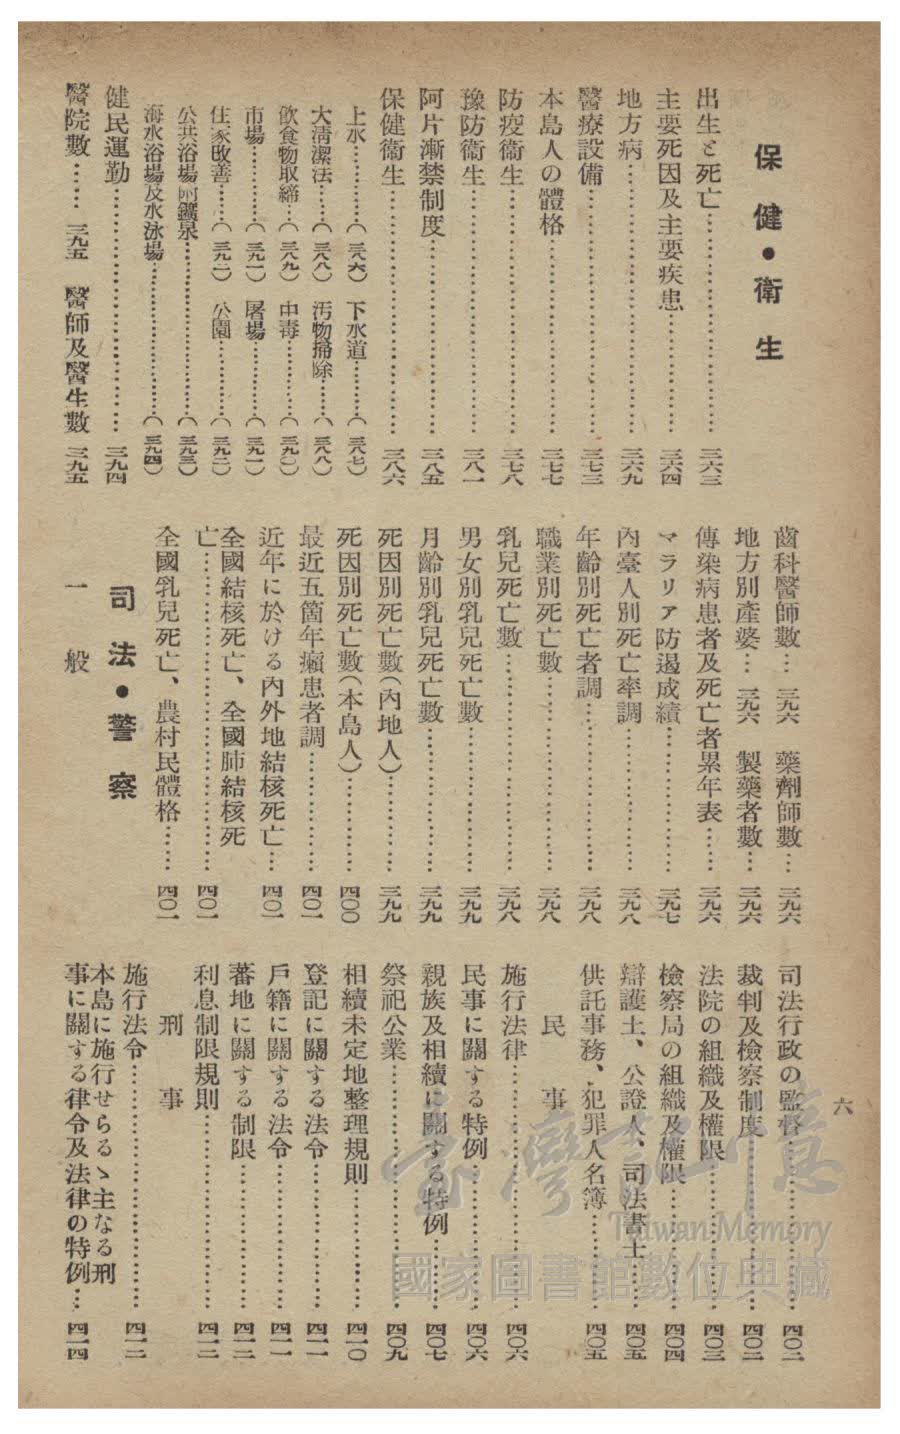 保健●衛生
出生と死亡……………………三六三
主要死因及主要疾患……………三六四
地方病……………………三六九
醫療設備……………………三七三
本島人の體格……………………三七七
防疫衞生……………………三七八
豫防衞生……………………三八一
阿片漸禁制度……………………三八五
保健衞生……………………三八六
上水…………(三八六) 下水道…………(三八七)
大淸潔法……(三八八) 汚物掃除……(三八八)
飮食物取締…(三八九) 中毒…………(三九〇)
市場…………(三九一) 屠場…………(三九一)
住家改善……(三九二) 公園…………(三九二)
公共浴場附鑛泉……………………(三九三)
海水浴場及水泳場……………………(三九四)
健民運動……………………三九四
醫院數……三九五 醫師及醫生數 三九五
齒科醫師數…三九六 藥劑師數…三九六
地方別產婆…三九六 製藥者數…三九六
傳染病患者及死亡者累年表……三九六
マラリア防遏成績……………三九七
內臺人別死亡率調……………三九八
年齡別死亡者調……………三九八
職業別死亡數……………三九八
乳兒死亡數……………三九八
男女別乳兒死亡數……………三九九
月齡別乳兒死亡數……………三九九
死因別死亡數(內地人)…………三九九
死因別死亡數(本島人)…………四〇〇
最近五箇年癩患者調……………四〇一
近年に於ける內外地結核死亡…四〇一
全國結核死亡、全國肺結核死
亡……………………四〇一
全國乳兒死亡、農村民體格……四〇一
司法●警察
一般
司法行政の監督……………四〇二
裁判及檢察制度……………四〇二
法院の組織及權限……………四〇三
檢察局の組織及權限……………四〇四
辯護士、公證人、司法書士……四〇五
供託事務、犯罪人名簿…………四〇五
民事
施行法律……………………四〇六
民事に關する特例……………四〇六
親族及相續に關する特例………四〇七
祭祀公業……………………四〇九
相續未定地整理規則……………四一〇
登記に關する法令……………四一一
戶籍に關する法令……………四一一
蕃地に關する制限……………四一二
利息制限規則……………四一二
刑事
施行法令……………………四一二
本島に施行せらるゝ主なる刑
事に關する律令及法律の特例…四一四
六
臺灣記憶
Taiwan Memory
國家圖書館數位典藏